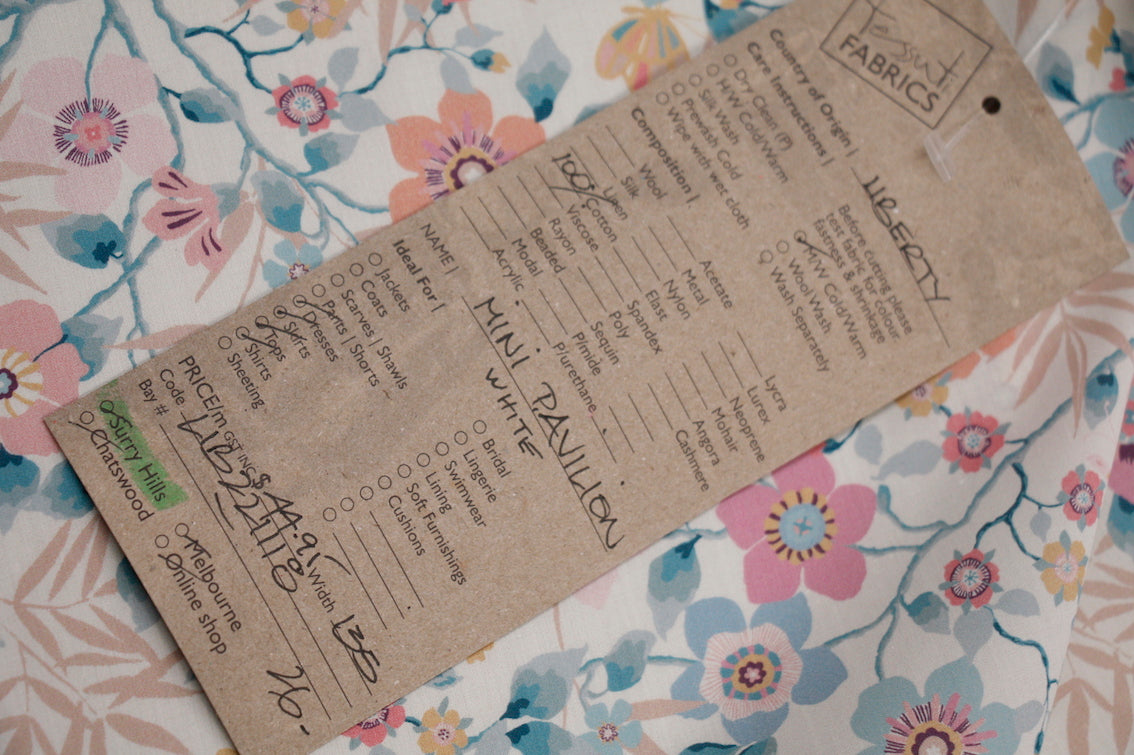 Tessuti
FABRICS
Country of Origin |
LIBERTY
Care Instructions |
Dry Clean (P)
H/W Cold/Warm
Silk Wash
Prewash Cold
Wipe with wet cloth
Before cutting please
test fabric for colour
fastness & shrinkage
M/W Cold/Warm
Wool Wash
Wash Separately
Composition |
Wool
Silk
Linen
100% Cotton
Viscose
Rayon
Beaded
Modal
Acrylic
Acetate
Metal
Nylon
Elast
Spandex
Poly
Sequin
P/imide
P/urethane
Lycra
Lurex
Neoprene
Mohair
Angora
Cashmere
NAME |
MINI PAVILION
WHITE
Ideal For |
Jackets
Coats
Scarves | Shawls
Pants | Shorts
Dresses
Skirts
Tops
Shirts
Sheeting
Bridal
Lingerie
Swimwear
Lining
Soft Furnishings
Cushions
PRICE/m GST INC $ 44.95 Width 135
Code LIB 227110
Bay # 26-
Surry Hills
Chatswood
Melbourne
Online shop